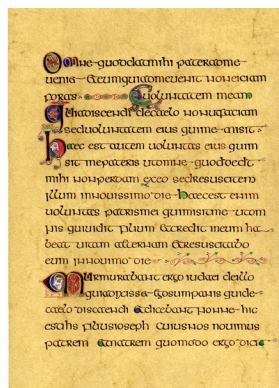 Omne quod dat mihi pater ad me
veniet Et eum qui ad me venit non eiciam
foras voluntatem meam
Quia discendi de caelo non ut faciam
sed voluntatem eius qui me misit
haec est autem voluntas eius qui mi
sit me patris ut omne quod dedit
mihi non perdam ex eo sed resuscitem
illum in novissimo die haec est enim
voluntas patris mei qui misit me ut om
nis qui videt filium Et credit in eum ha
beat vitam aeternam Et resuscitabo
eum in novissimo die
Murmurabant ergo iudaei de illo
quia dixisset Ego sum panis qui de
caelo discendi Et dicebant nonne hic
est ihs filius ioseph cuius nos novimus
patrem Et matrem quomodo ergo dicit